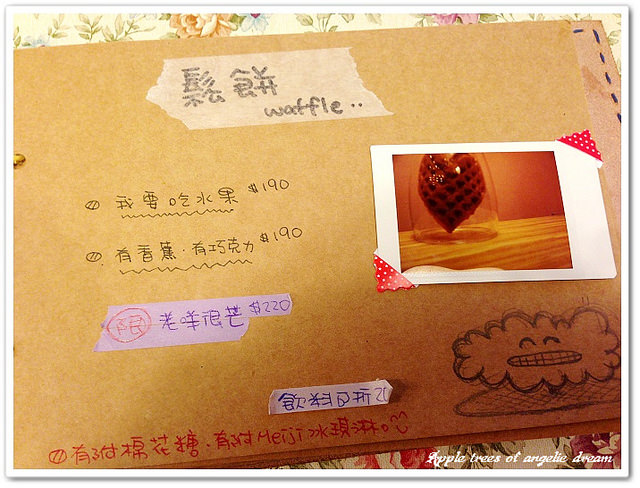 鬆餅
waffle..
我要吃水果 $190
有香蕉·有巧克力 $190
限 老咩很芒 $220
飲料可折20
有附棉花糖·有附Meiji冰琪淋。
Apple trees of angelic dream